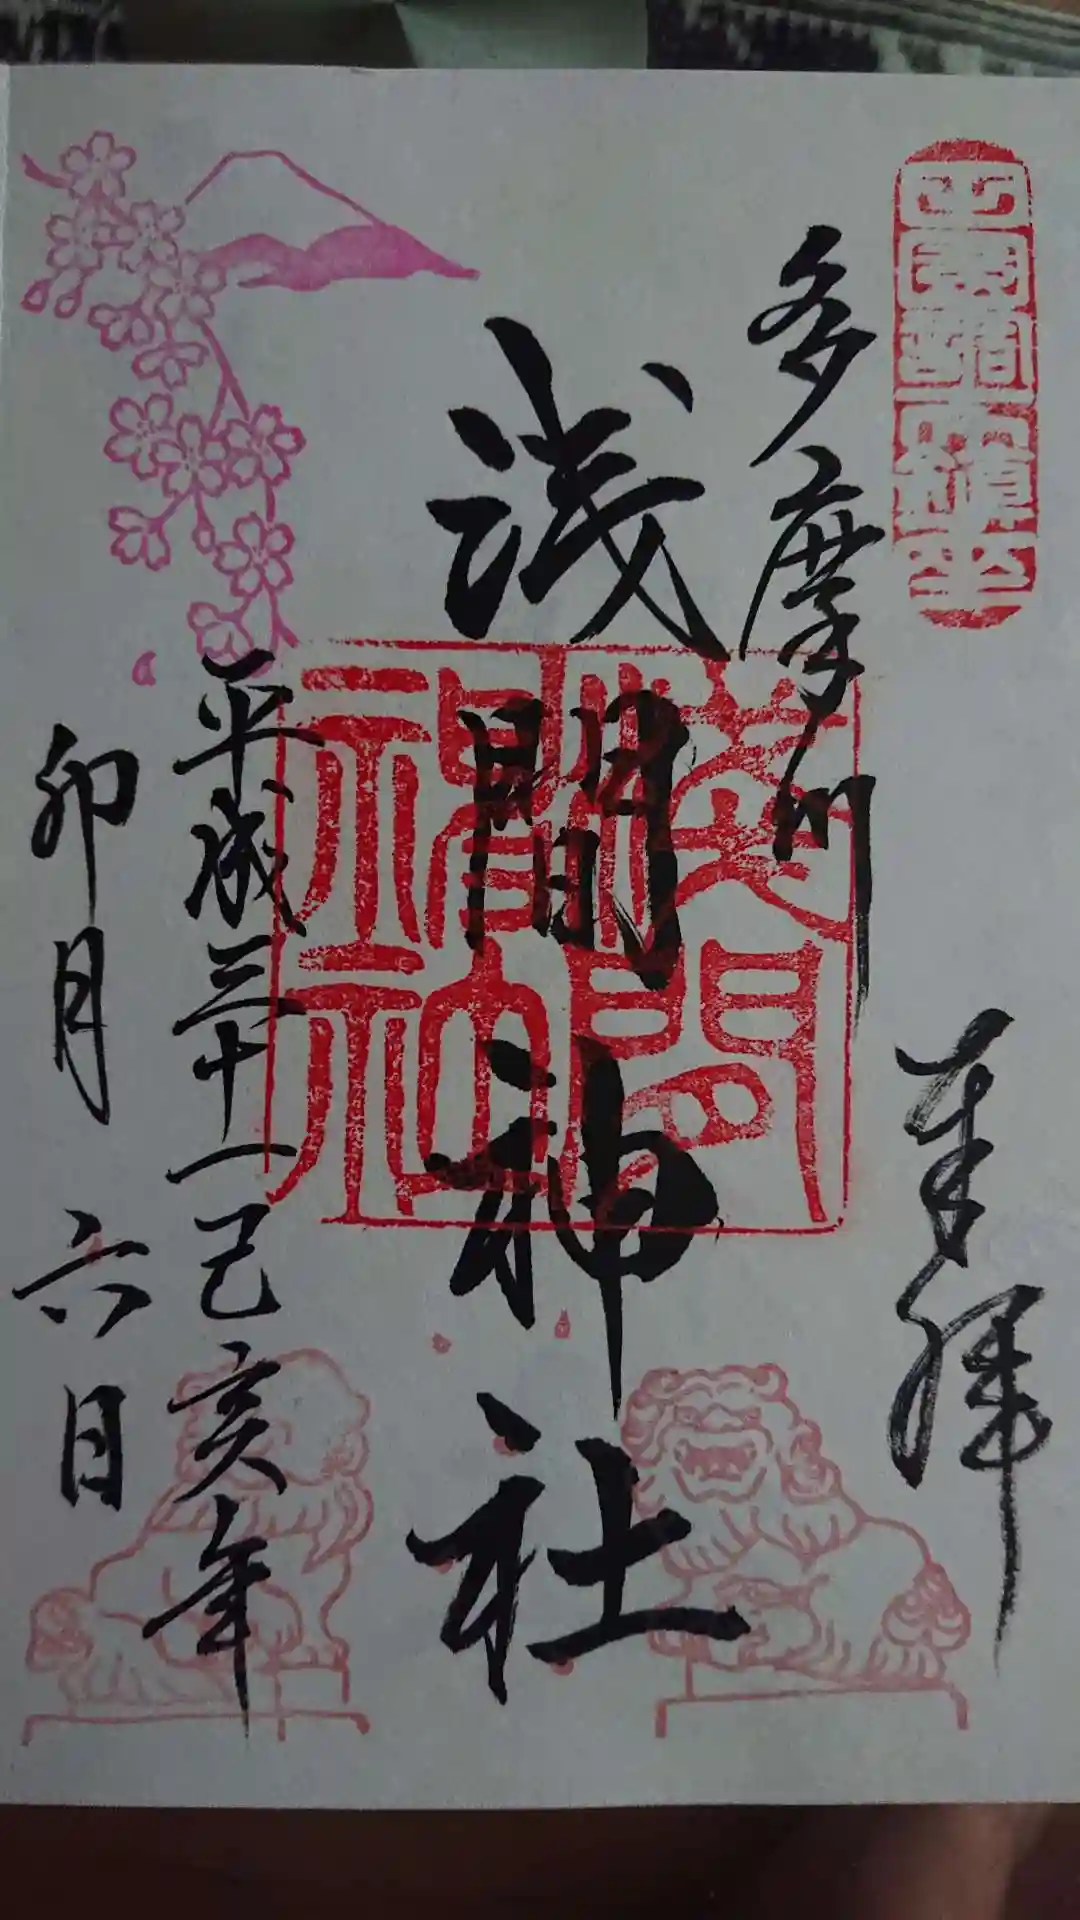 奉拝
多摩川
浅間神社
平成三十一己亥年
卯月六日